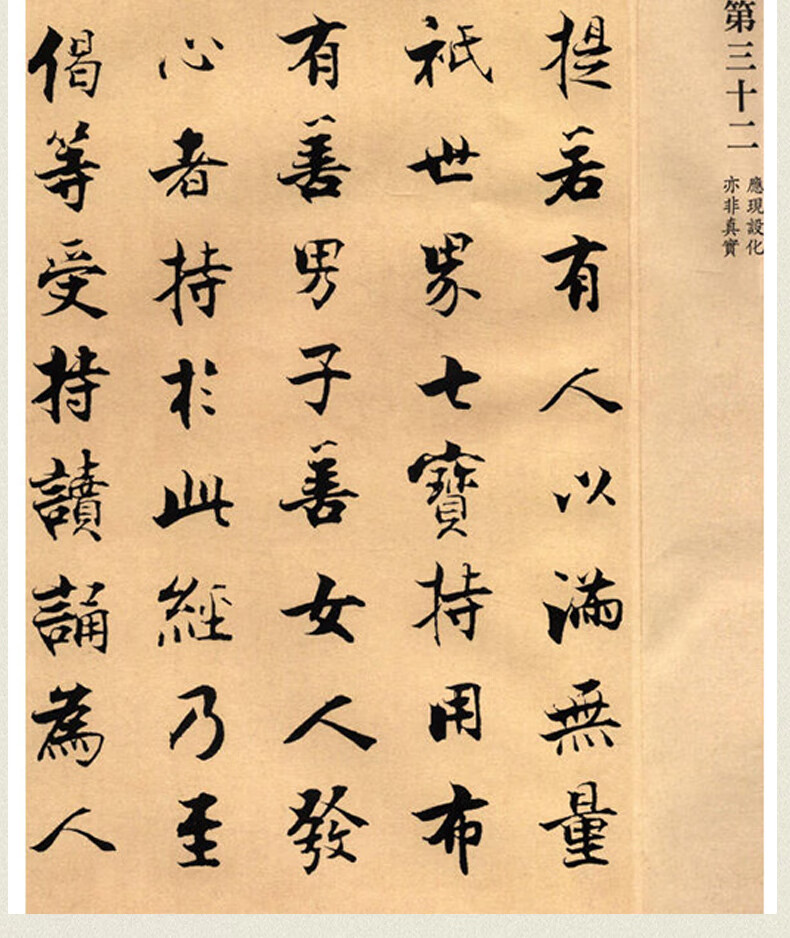 第三十二
應現設化
亦非真實
提若有人以滿無量
祇世界七寶持用布
有善男子善女人發
心者持於此經乃至
偈等受持讀誦為人